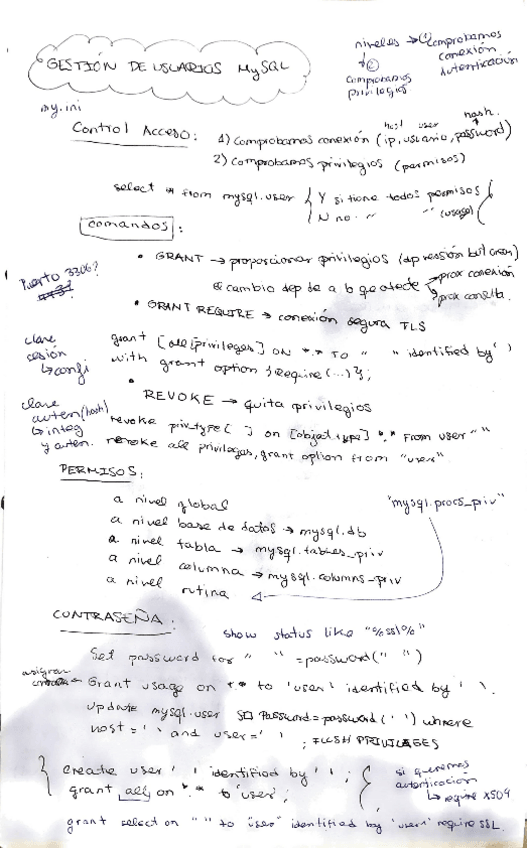 GESTIÓN DE USUARIOS MySQL
niveles → (1) Comprobamos
conexión
autenticación
(2)
comprobamos
privilegios
my.ini
Control Acceso:
host user hash.
1) Comprobamos conexión (ip, usuario, password)
2) Comprobamos privilegios (permisos)
select * from mysql.user { Y si tiene todos permisos
N no " " (usage)
comandos:
• GRANT → proporcionar privilegios (dp sesión
el cambio dep de a lo que afecte → prox conexión
prox consulta.
Puerto 3306?
• GRANT REQUIRE → conexión segura TLS
clave
sesión
↳ confi
grant [all privileges] ON *.* TO " " identified by ' '
with grant option {require (...)};
• REVOKE → quita privilegios
clave
auten (hash)
↳ integ
y auten.
revoke priv_type [ ] on [object type] *.* From user " "
revoke all privileges, grant option from "user".
PERMISOS:
a nivel global
a nivel base de datos → mysql.db
a nivel tabla → mysql.tables_priv
a nivel columna → mysql.columns_priv
a nivel rutina
"mysql.procs_priv"
CONTRASEÑA:
show status like "%ssl%"
Set password for " " = password (" ")
asignar
Grant usage on *.* to 'user' identified by ' '.
update mysql.user Password = password (' ') where
host = ' ' and user = ' ' ; FLUSH PRIVILEGES
{ create user ' ' identified by ' ' ;
grant all on *.* to 'user';
si queremos
autenticación
↳ require X509
grant select on " " to "user" identified by 'user' require SSL.